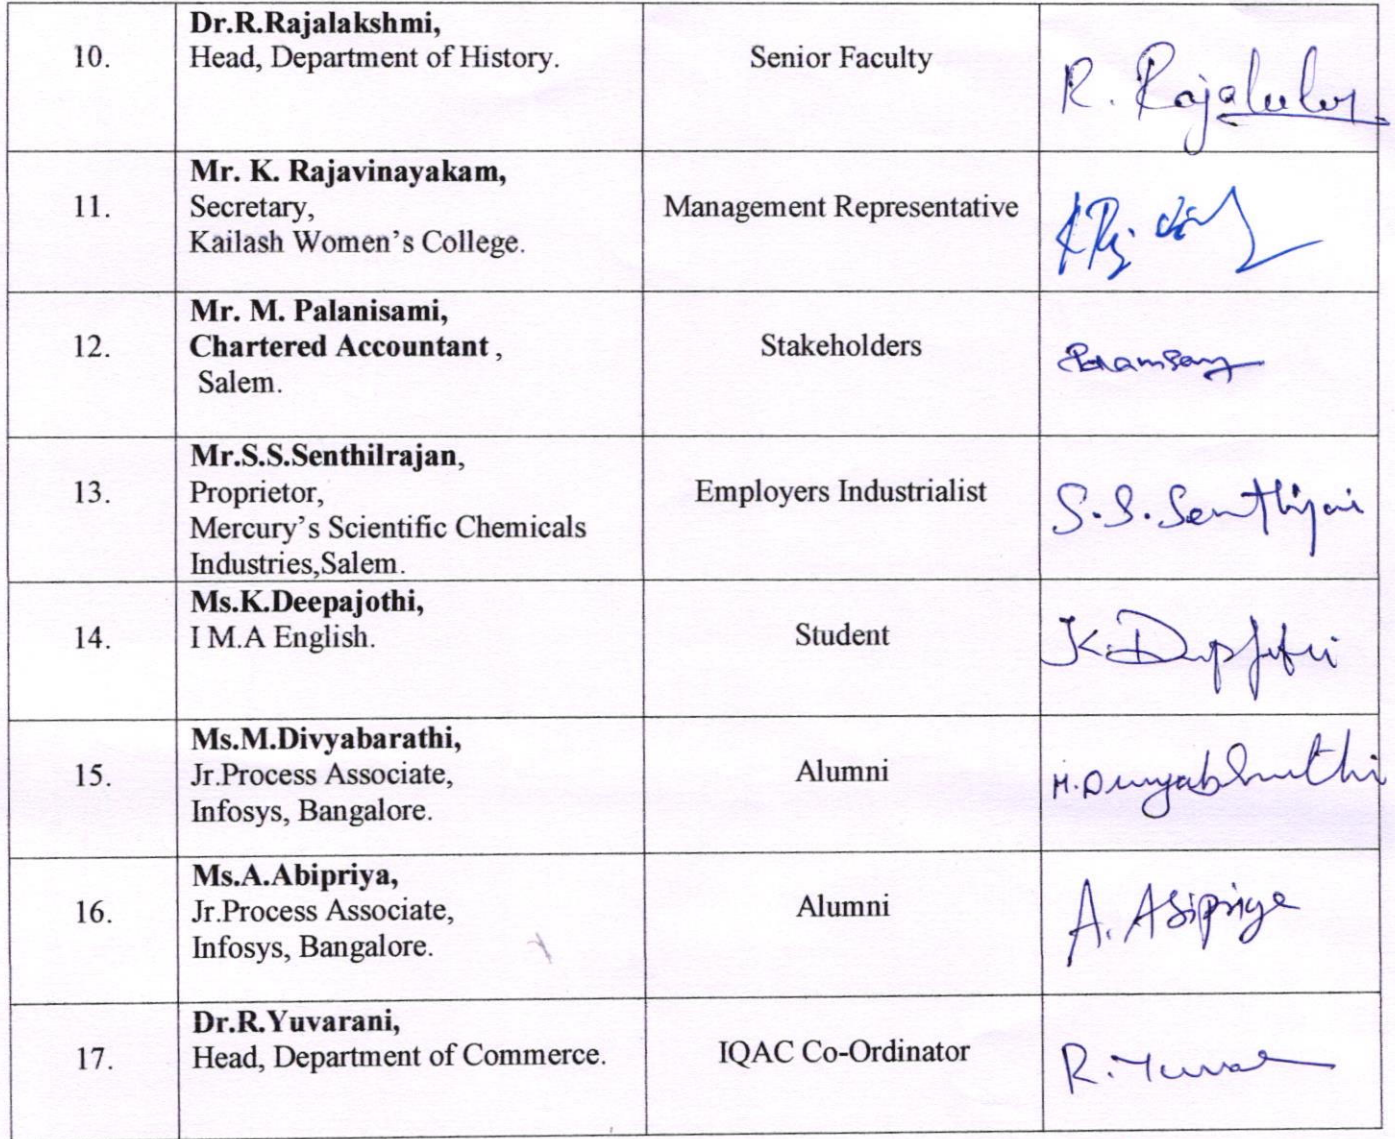 10.
Dr.R.Rajalakshmi,
Head, Department of History.
Senior Faculty
R. Rajalul
11.
Mr. K. Rajavinayakam,
Secretary,
Kailash Women's College.
Management Representative
12.
Mr. M. Palanisami,
Chartered Accountant ,
Salem.
Stakeholders
13.
Mr.S.S.Senthilrajan,
Proprietor,
Mercury's Scientific Chemicals
Industries,Salem.
Employers Industrialist
S.S.
14.
Ms.K.Deepajothi,
I M.A English.
Student
K.
15.
Ms.M.Divyabarathi,
Jr.Process Associate,
Infosys, Bangalore.
Alumni
M.
16.
Ms.A.Abipriya,
Jr.Process Associate,
Infosys, Bangalore.
Alumni
A. Abipriya
17.
Dr.R.Yuvarani,
Head, Department of Commerce.
IQAC Co-Ordinator
R.